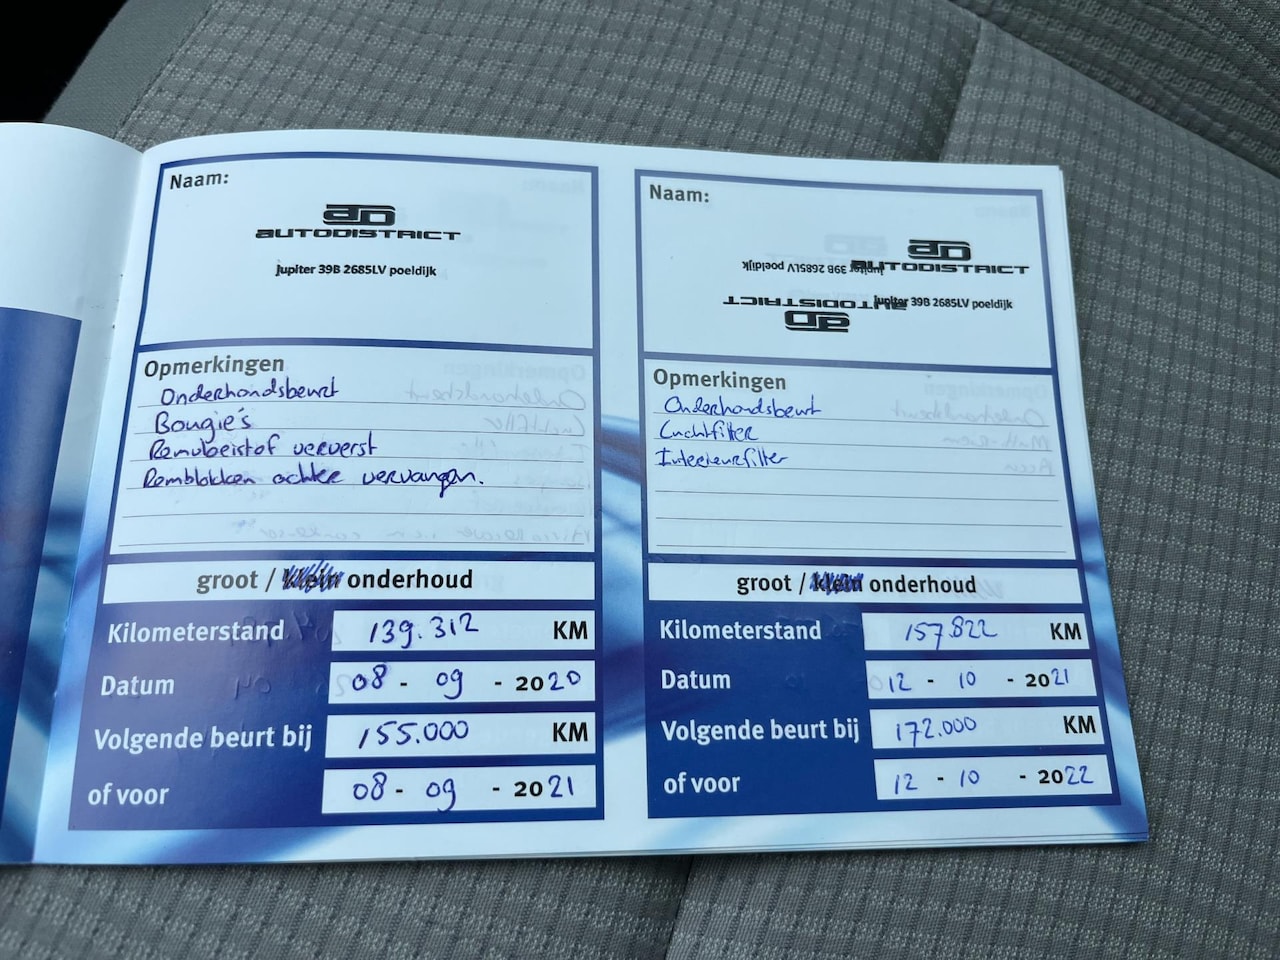 Naam:
AUTODISTRICT
Jupiter 39B 2685LV poeldijk
Opmerkingen
Onderhondsbeurt
Bougie's
Remvloeistof ververst
Remblokken achter vervangen.
groot / klein onderhoud
Kilometerstand 139.312 KM
Datum 08 - 09 - 2020
Volgende beurt bij 155.000 KM
of voor 08 - 09 - 2021
Naam:
AUTODISTRICT
Jupiter 39B 2685LV poeldijk
AUTODISTRICT
Jupiter 39B 2685LV poeldijk
Opmerkingen
Onderhondsbeurt
Luchtfilter
Interieurfilter
groot / klein onderhoud
Kilometerstand 157822 KM
Datum 12 - 10 - 2021
Volgende beurt bij 172.000 KM
of voor 12 - 10 - 2022